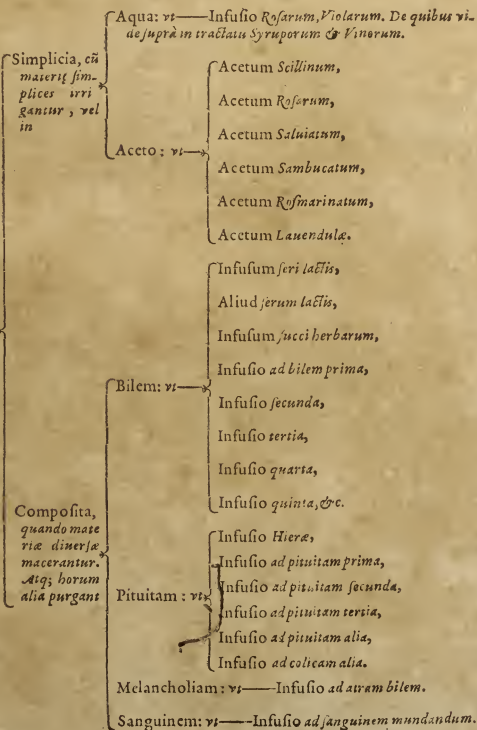 Simplicia, cũ
materię ſim-
plices irri
gantur, vel
in
Aqua: vt—Infuſio Roſarum, Violarum. De quibus vi-
de ſuprà in tractatu Syruporum & Vinorum.
Aceto: vt
Acetum Scillinum,
Acetum Roſarum,
Acetum Saluiatum,
Acetum Sambucatum,
Acetum Roſmarinatum,
Acetum Lauendulæ.
Compoſita,
quando mate
riæ diuerſæ
macerantur.
Atq; horum
alia purgant
Bilem: vt
Infuſum ſeri lactis,
Aliud ſerum lactis,
Infuſum ſucci herbarum,
Infuſio ad bilem prima,
Infuſio ſecunda,
Infuſio tertia,
Infuſio quarta,
Infuſio quinta, &c.
Pituitam: vt
Infuſio Hieræ,
Infuſio ad pituitam prima,
Infuſio ad pituitam ſecunda,
Infuſio ad pituitam tertia,
Infuſio ad pituitam alia,
Infuſio ad colicam alia.
Melancholiam: vt—Infuſio ad atram bilem.
Sanguinem: vt—Infuſio ad ſanguinem mundandum.